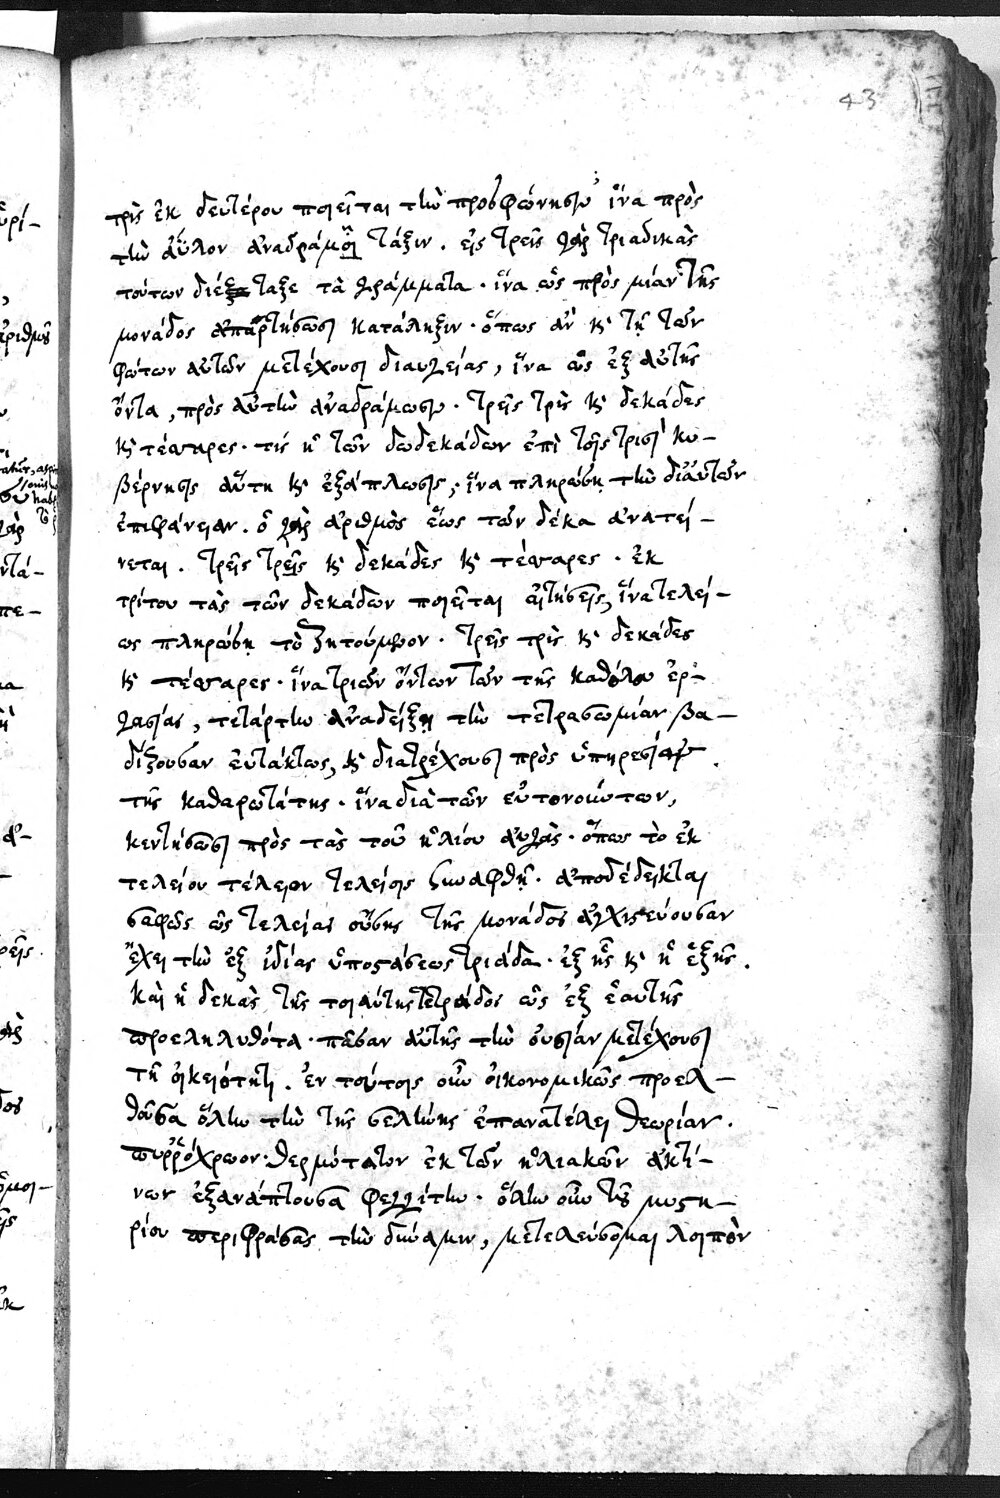 43
τρὶς ἐκ δευτέρου ποιεῖται τὴν προσφώνησιν ἵνα πρὸς
τὴν ἄϋλον ἀναδράμοι τάξιν. εἰς τρεῖς γὰρ τριαδικὰς
τούτων διέταξε τὰ γράμματα · ἵνα ὡς πρὸς μίαν τῆς
μονάδος ἀπαρτήσωσι κατάληξιν · ὅπως ἂν καὶ τῇ τῶν
φώτων αὐτῶν μετέχουσι διαυγείας, ἵνα ὡς ἐξ αὐτῆς
ὄντα, πρὸς αὐτὴν ἀναδράμωσιν · τρεῖς τρὶς καὶ δεκάδες
καὶ τέσσαρες · τίς ἡ τῶν δωδεκάδων ἐπὶ τοῖς τρισὶ κυ-
βέρνησις αὕτη καὶ ἐξάπλωσις, ἵνα πληρώσῃ τὴν δι' αὐτῶν
ἐπιφάνειαν. ὁ γὰρ ἀριθμὸς ἕως τῶν δέκα ἀνατεί-
νεται. τρεῖς τρεῖς καὶ δεκάδες καὶ τέσσαρες · ἐκ
τρίτου τὰς τῶν δεκάδων ποιεῖται αἰτήσεις, ἵνα τελεί-
ως πληρώσῃ τὸ ζητούμενον · τρεῖς τρὶς καὶ δεκάδες
καὶ τέσσαρες · ἵνα τριῶν ὄντων τῶν τῆς καθόλου ἐρ-
γασίας, τετάρτην ἀναδείξῃ τὴν τετρασωμίαν βα-
δίζουσαν εὐτάκτως, καὶ διατρέχουσι πρὸς ὑπηρεσίαν
τῆς καθαρωτάτης · ἵνα διὰ τῶν εὐτονούντων,
κεντήσωσι πρὸς τὰς τοῦ ἡλίου αὐγὰς · ὅπως τὸ ἐκ
τελείου τέλειον τελείοις συναφθῇ · ἀποδέδεικται
σαφῶς ὡς τελείας οὔσης τῆς μονάδος ἀγχιστεύουσαν
ἔχει τὴν ἐξ ἰδίας ὑποστάσεως τριάδα · ἐξ ἧς καὶ ἡ ἑξῆς.
καὶ ἡ δεκὰς τῆς τοιαύτης τετράδος ὡς ἐξ ἑαυτῆς
προεληλυθότα · πᾶσαν αὐτῆς τὴν οὐσίαν μετέχουσι
τῇ οἰκειότητι. ἐν τούτοις οὖν οἰκονομικῶς προελ-
θοῦσα ὅλην τὴν τῆς σελήνης ἐπανατέλει θεωρίαν.
πυρρόχρωον · θερμότατον ἐκ τῶν ἡλιακῶν ἀκτί-
νων ἐξανάπτουσα φεγγίτην · ὅλην οὖν τοῦ μυστη-
ρίου περιφράσας τὴν δύναμιν, μετελεύσομαι λοιπὸν